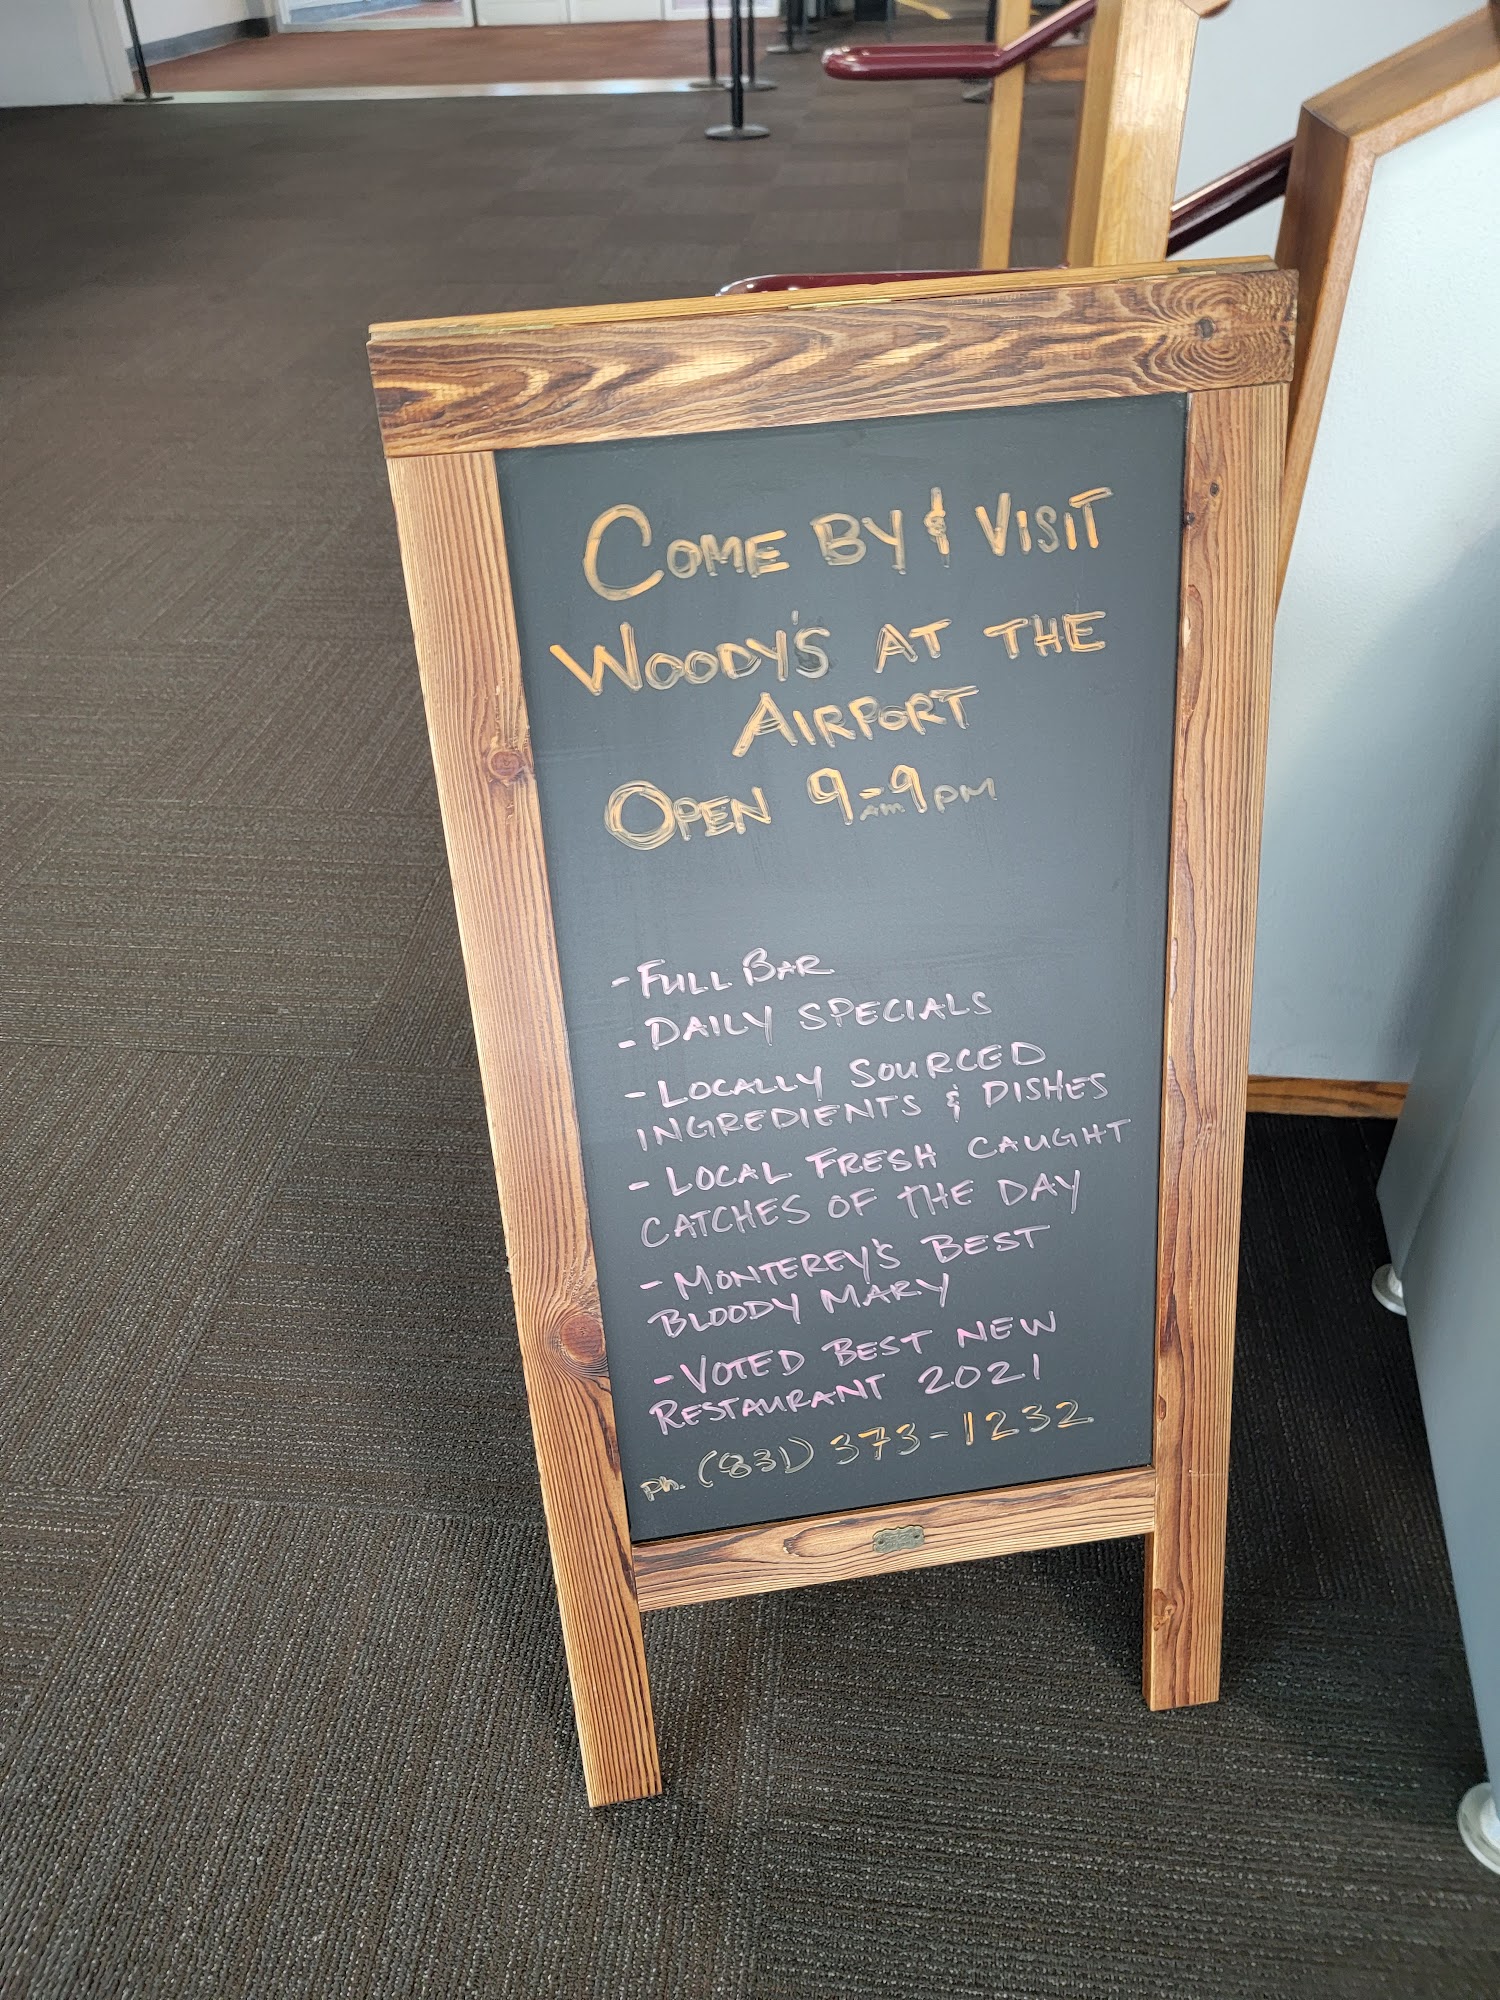 COME BY & VISIT
WOODY'S AT THE
AIRPORT
OPEN 9AM-9PM
- FULL BAR
- DAILY SPECIALS
- LOCALLY SOURCED
INGREDIENTS & DISHES
- LOCAL FRESH CAUGHT
CATCHES OF THE DAY
- MONTEREY'S BEST
BLOODY MARY
- VOTED BEST NEW
RESTAURANT 2021
Ph. (831) 373-1232